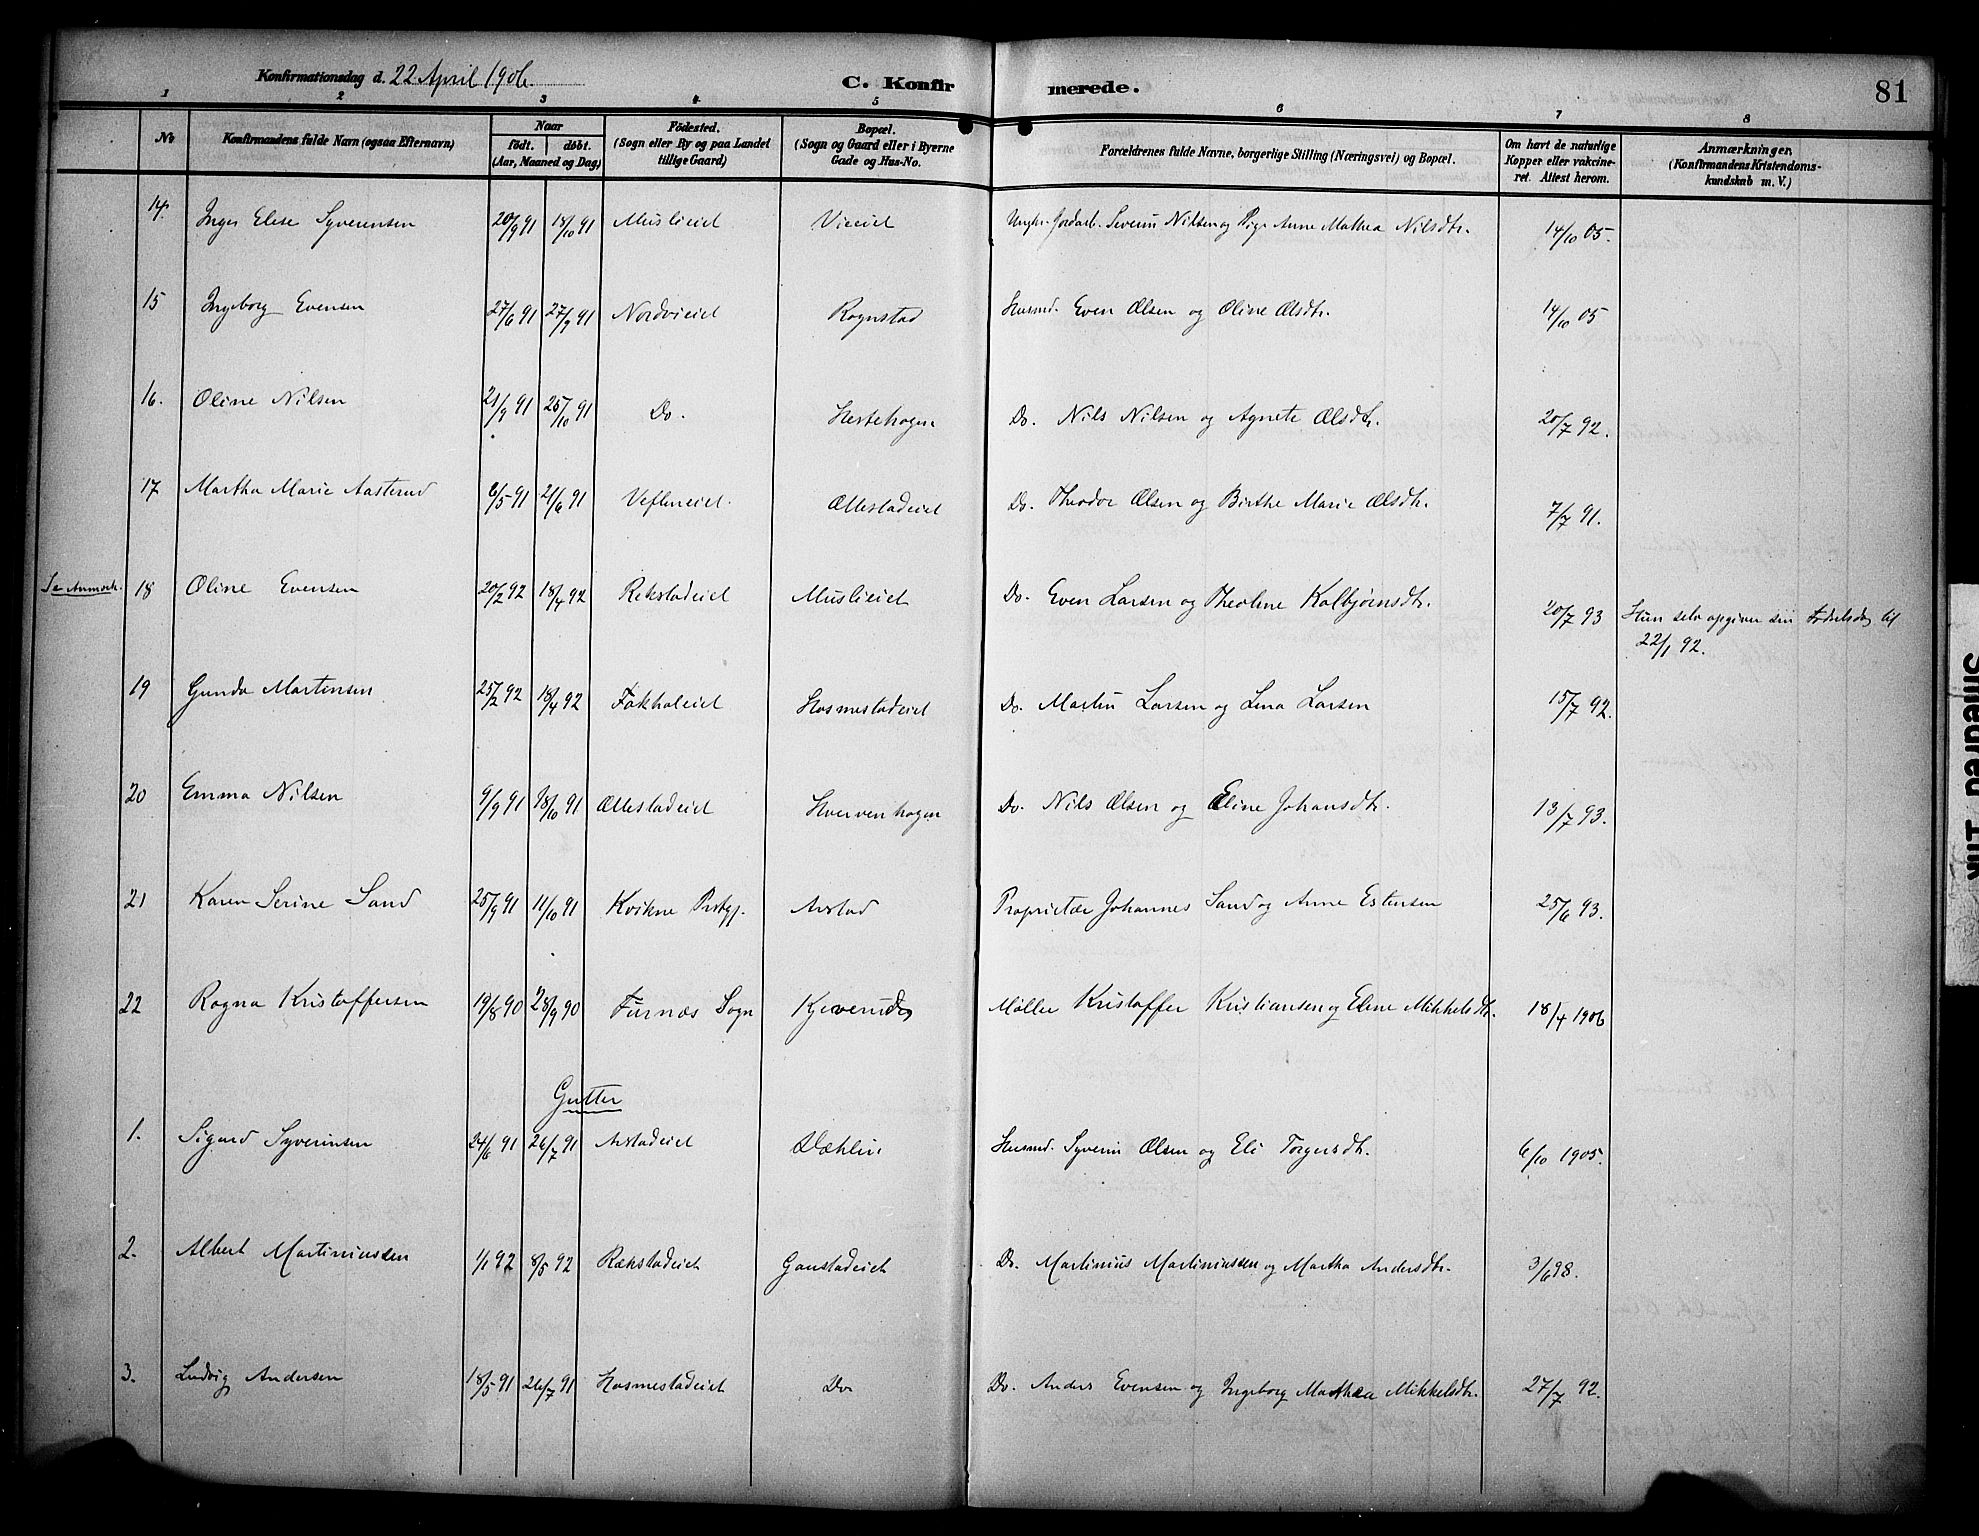 Konfirmationsdag d. 22 April 1906.
C. Konfirmerede.
81
1 2 3 4 5 6 7 8
No
Konfirmandens fulde Navn (ogsaa Efternavn)
Naar
födt. döbt.
(Aar, Maaned og Dag)
Födested.
(Sogn eller By og paa Landet
tillige Gaard)
Bopæl.
(Sogn og Gaard eller i Byerne
Gade og Hus-No.
Forældrenes fulde Navne, borgerlige Stilling (Næringsvei) og Bopæl.
Om havt de naturlige
Kopper eller vakcine-
ret. Attest herom.
Anmærkninger.
(Konfirmandens Kristendoms-
kundskab m. V.)
14. Inger Elise Syverinsen 20/9 91 18/10 91 Muslieiet Vieeiet Ungkr. Jordarb. Severin Nilsen og Pige Anne Mathea Nilsdtr. 14/10 05.
15 Ingeborg Evensen 27/6 91 27/9 91 Nordvieiet Rognstad Husmd. Even Olsen og Oline Olsdtr. 14/10 05
16. Oline Nilsen 21/9 91 25/10 91 Do. Hestehagen Do. Nils Nilsen og Agnete Olsdtr. 20/7 92.
17 Martha Marie Aasterud 6/5 91 21/6 91 Vefleneiet Ollestadeiet Do. Theodor Olsen og Birthe Marie Olsdtr. 7/7 91.
Se Anmærk. 18 Oline Evensen 20/2 92 18/4 92 Rekstadeiet Muslieiet Do. Even Larsen og Theoline Kolbjørnsdtr. 20/7 93 Hun selv opgiver sin Fødselsdag til
22/1 92.
19 Gunda Martinsen 25/2 92 18/4 92 Fakhaleiet Hosmestadeiet Do. Martin Larsen og Lena Larsen 15/7 92.
20 Emma Nilsen 9/9 91 18/10 91 Ollestadeiet Hvervenhagen Do. Nils Olsen og Eline Johansdtr. 13/7 93.
21 Karen Serine Sand 25/9 91 11/10 91 Kvikne Prstgj. Arstad Proprietær Johannes Sand og Anne Estensen 25/6 93.
22 Ragna Kristoffersen 19/8 90 28/9 90 Furnæs Sogn Kjeverud Møller Kristoffer Kristiansen og Elene Mikkelsdtr. 18/4 1906
Gutter
1. Sigurd Syverinsen 24/6 91 26/7 91 Arstadeiet Dæhlin Husmd. Syverin Olsen og Eli Torgersdtr. 6/10 1905.
2. Albert Martiniussen 1/1 92 8/5 92 Rækstadeiet Gaustadeiet Do. Martinius Martiniussen og Martha Andersdtr. 3/6 98.
3. Ludvig Andersen 18/5 91 26/7 91 Hosmestadeiet Do Do. Anders Evensen og Ingeborg Mathea Mikkelsdtr. 27/7 92.